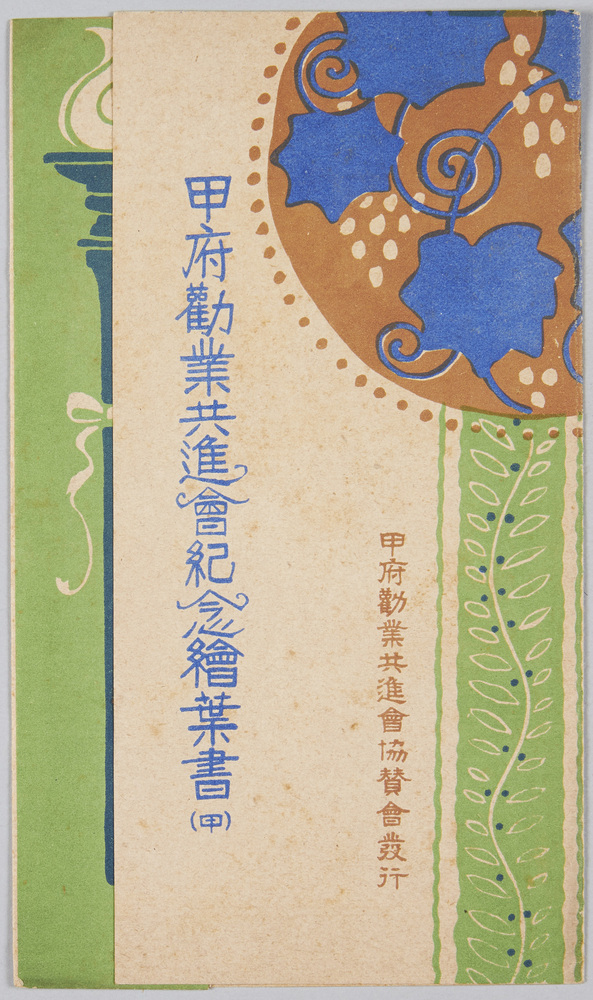 甲府勸業共進會協賛會發行
甲府勸業共進會紀念繪葉書(甲)